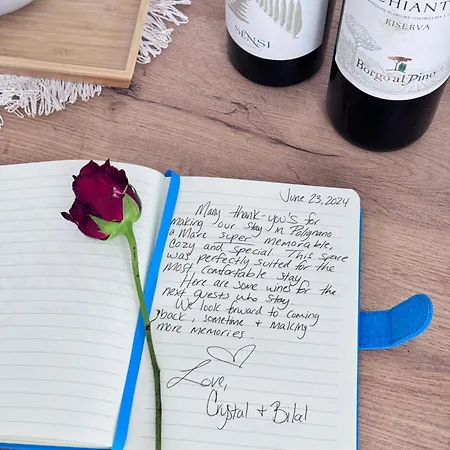 SENSI
CHIANTI
RISERVA
Borgo al Pino
June 23, 2024
Many thank-you's for
making our stay in Polignano
a Mare super memorable,
cozy and special. This space
was perfectly suited for the
most comfortable stay.
Here are some wines for the
next guests who stay.
We look forward to coming
back, sometime + making
more memories.
Love,
Crystal + Bilal